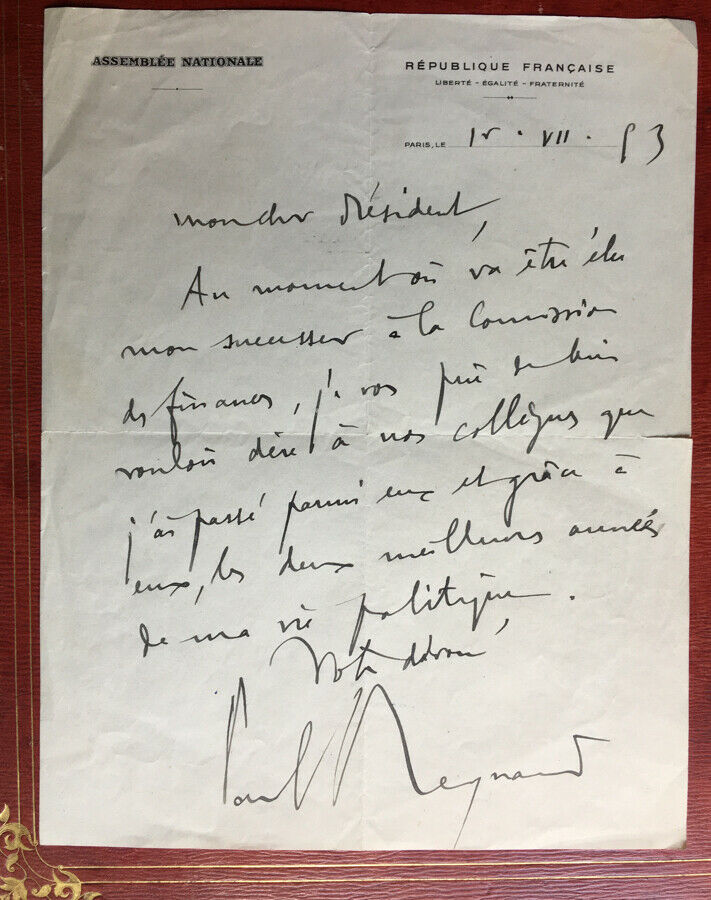 ASSEMBLÉE NATIONALE
RÉPUBLIQUE FRANÇAISE
LIBERTÉ - ÉGALITÉ - FRATERNITÉ
PARIS, LE 15 . VII . 53
mon cher Président,
Au moment où va être élu
mon successeur à la Commission
des finances, je vous prie de bien
vouloir dire à nos collègues que
j'ai passé parmi eux et grâce à
eux, les deux meilleures années
de ma vie politique.
Votre dévoué,
Paul Reynaud